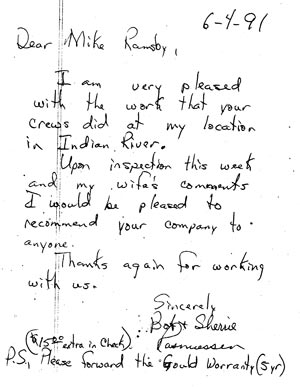 6-4-91
Dear Mike Ramsby,
I am very pleased
with the work that your
crews did at my location
in Indian River.
Upon inspection this week
and my wife's comments
I would be pleased to
recommend your company to
anyone.
Thanks again for working
with us.
Sincerely
Bob & Sherie
Rasmussen
($15.00 extra in Check)
P.S., Please forward the Gould Warranty (5 yr)